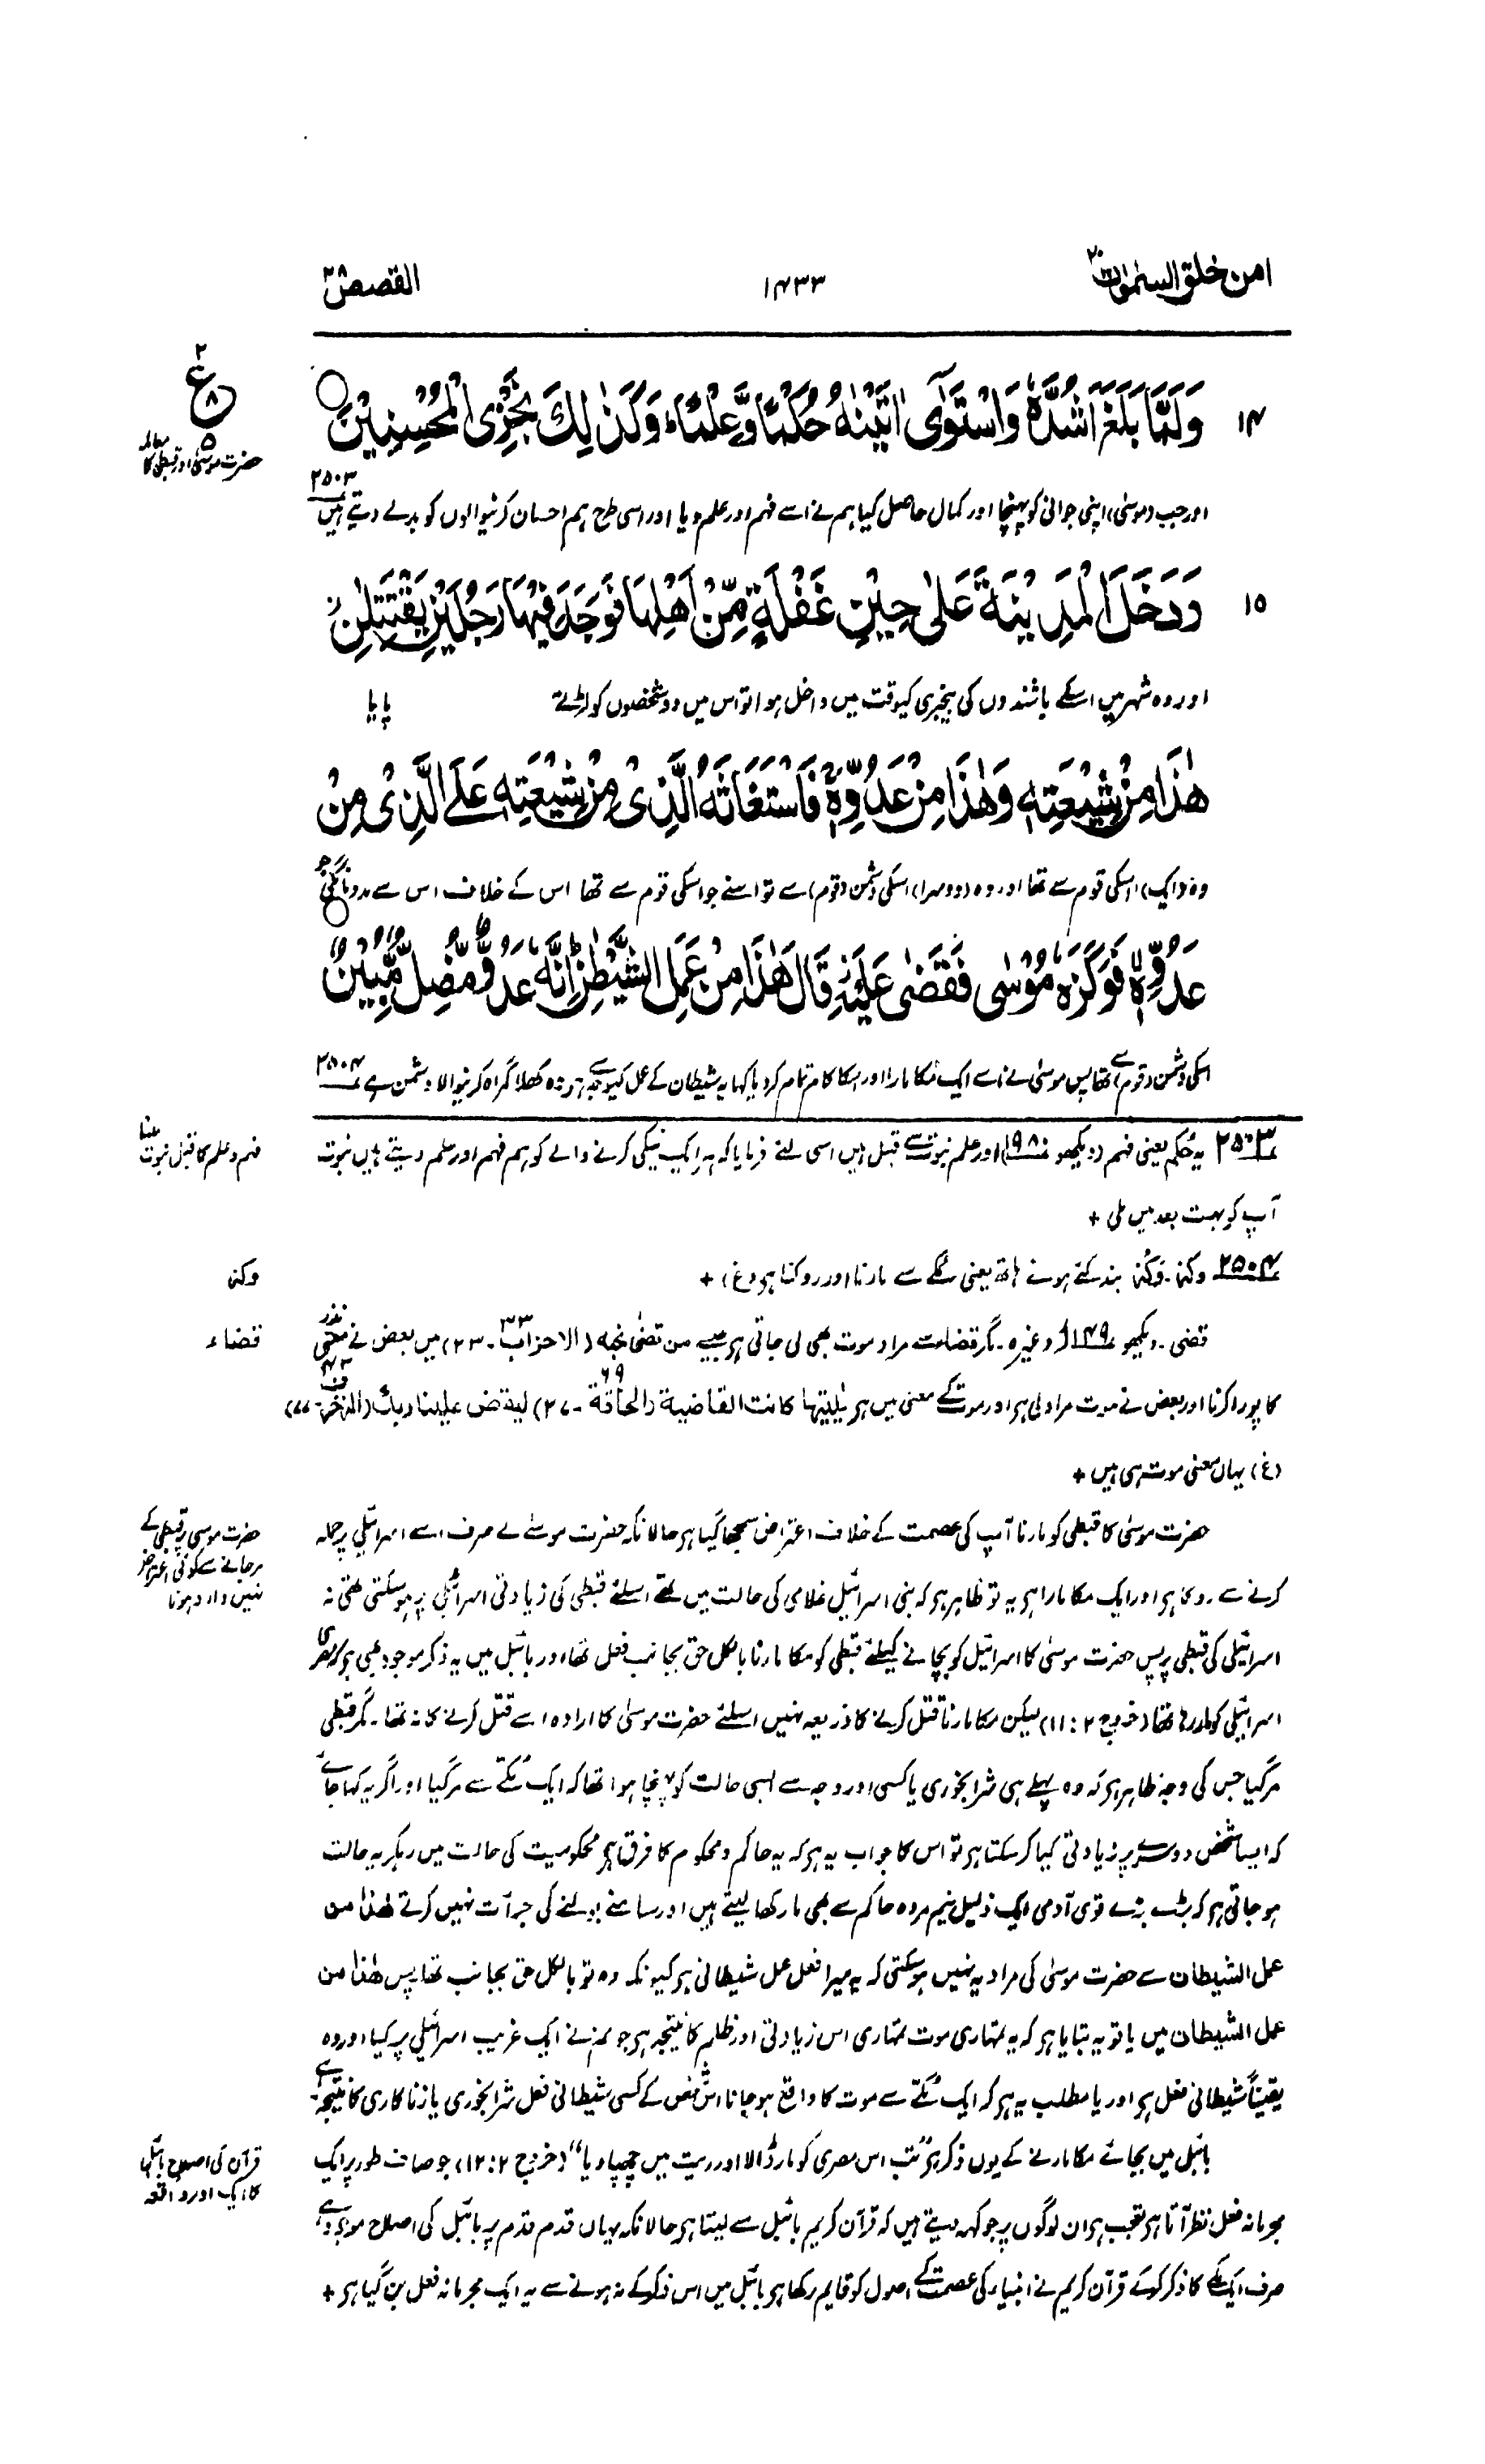 امن خلق السمٰوٰت ۲۰
۱۴۳۳
القصص ۲۸
۱۴ وَلَمَّا بَلَغَ اَشُدَّهٗ وَاسْتَوٰۤى اٰتَيْنٰهُ حُكْمًا وَّعِلْمًا ؕ وَكَذٰلِكَ نَجْزِى الْمُحْسِنِيْنَ ○
۲ ع ۸ ۵
حضرت موسیٰ اور قبطی کا معاملہ
اور جب (موسیٰ) اپنی جوانی کو پہنچا اور کمال حاصل کیا ہم نے اسے فہم اور علم دیا اور اسی طرح ہم احسان کرنیوالوں کو بدلے دیتے ہیں ۲۵۰۳
۱۵ وَدَخَلَ الْمَدِيْنَةَ عَلٰى حِيْنِ غَفْلَةٍ مِّنْ اَهْلِهَا فَوَجَدَ فِيْهَا رَجُلَيْنِ يَقْتَتِلٰنِ
اور وہ شہر میں اسکے باشندوں کی بیخبری کیوقت میں داخل ہوا تو اس میں دو شخصوں کو لڑتے پایا
هٰذَا مِنْ شِيْعَتِهٖ وَهٰذَا مِنْ عَدُوِّهٖ ۚ فَاسْتَغَاثَهُ الَّذِىْ مِنْ شِيْعَتِهٖ عَلَى الَّذِىْ مِنْ
وہ (ایک) اسکی قوم سے تھا اور وہ (دوسرا) اسکی دشمن (قوم) سے تو اسنے جو اسکی قوم سے تھا اس کے خلاف اس سے مدد مانگی جو
عَدُوِّهٖ ۙ فَوَكَزَهٗ مُوْسٰى فَقَضٰى عَلَيْهِ ۖ قَالَ هٰذَا مِنْ عَمَلِ الشَّيْطٰنِ ؕ اِنَّهٗ عَدُوٌّ مُّضِلٌّ مُّبِيْنٌ ○
اسکی دشمن (قوم) سے تھا پس موسیٰ نے اسے ایک مکا مارا اور اسکا کام تمام کردیا کہا یہ شیطان کے عمل کیوجہ سے ہے وہ کھلا گمراہ کرنیوالا دشمن ہے ۲۵۰۴
۲۵۰۳ یہ حُکم یعنی فہم (دیکھو ۱۹۸) اور علم نبوت سے قبل ہیں اسی لئے فرمایا کہ ہر ایک نیکی کرنے والے کو ہم فہم اور علم دیتے ہیں نبوت
فہم و علم کا قبل نبوت ملنا
آپ کو بہت بعد میں ملی +
۲۵۰۴ وکز۔ وَکْز بند کئے ہوئے ہاتھ یعنی مکے سے مارنا اور روکنا ہے (غ) +
وکز
قضی۔ دیکھو ۱۴۹ وغیرہ۔ مگر قضاء سے مراد موت بھی لی جاتی ہے جیسے من قضیٰ نحبہ (الاحزاب ۳۳۔ ۲۳) میں بعض نے معنی نذر
قضاء
کا پورا کرنا اور بعض نے موت مراد لی ہے اور موت کے معنی میں ہے یٰلیتہا کانت القاضیۃ (الحاقۃ ۶۹۔ ۲۷) لیقض علینا ربک (الزخرف ۴۳۔ ۷۷)
(غ) یہاں معنی موت ہی ہیں +
حضرت موسیٰ کا قبطی کو مارنا آپ کی عصمت کے خلاف اعتراض سمجھا گیا ہے حالانکہ حضرت موسیٰ نے صرف اسے اسرائیلی پر حملہ
حضرت موسیٰ پر قبطی کے مرجانے سے کوئی اعتراض نہیں وارد ہوتا
کرنے سے روکا ہے اور ایک مکا مارا ہے یہ تو ظاہر ہے کہ بنی اسرائیل غلامی کی حالت میں تھے اسلئے قبطی کی زیادتی اسرائیلی پر ہوسکتی تھی نہ
اسرائیلی کی قبطی پر پس حضرت موسیٰ کا اسرائیل کو بچانے کیلئے قبطی کو مکا مارنا بالکل حق بجانب فعل تھا اور بائبل میں یہ ذکر موجود بھی ہے کہ مصری
اسرائیلی کو مار رہا تھا (خروج ۲ : ۱۱) لیکن مکا مارنا قتل کرنے کا ذریعہ نہیں اسلئے حضرت موسیٰ کا ارادہ اسے قتل کرنے کا نہ تھا۔ مگر قبطی
مرگیا جس کی وجہ ظاہر ہے کہ وہ پہلے ہی شرابخوری یا کسی اور وجہ سے ایسی حالت کو پہنچا ہوا تھا کہ ایک مُکے سے مرگیا اور اگر یہ کہا جائے
کہ ایسا شخص دوسرے پر زیادتی کیا کرسکتا ہے تو اس کا جواب یہ ہے کہ یہ حاکم و محکوم کا فرق ہے محکومیت کی حالت میں رہکر یہ حالت
ہوجاتی ہے کہ بڑے بڑے قوی آدمی ایک ذلیل نیم مردہ حاکم سے بھی مار کھا لیتے ہیں اور سامنے بولنے کی جرأت نہیں کرتے ھٰذا من
عمل الشیطان سے حضرت موسیٰ کی مراد یہ نہیں ہوسکتی کہ یہ میرا فعل عمل شیطانی ہے کیونکہ وہ تو بالکل حق بجانب تھا پس ھٰذا من
عمل الشیطان میں یا تو یہ بتایا ہے کہ یہ تمہاری موت تمہاری اس زیادتی اور ظلم کا نتیجہ ہے جو تم نے ایک غریب اسرائیلی پر کیا اور وہ
یقیناً شیطانی فعل ہے اور یا مطلب یہ ہے کہ ایک مُکے سے موت کا واقع ہوجانا اس شخص کے کسی شیطانی فعل شرابخوری یا زناکاری کا نتیجہ ہے۔
بائبل میں بجائے مکا مارنے کے یوں ذکر ہے "تب اس مصری کو مار ڈالا اور ریت میں چھپا دیا" (خروج ۲ : ۱۲) جو صاف طور پر ایک
قرآن کی اصلاح بائبل کا ایک اور واقعہ
مجرمانہ فعل نظر آتا ہے تعجب ہے ان لوگوں پر جو کہہ دیتے ہیں کہ قرآن کریم بائبل سے لیتا ہے حالانکہ یہاں قدم قدم پر بائبل کی اصلاح موجود ہے
صرف ایک مکے کا ذکر کرکے قرآن کریم نے انبیاء کی عصمت کے اصول کو قایم رکھا ہے بائبل میں اس ذکر کے نہ ہونے سے یہ ایک مجرمانہ فعل بن گیا ہے +